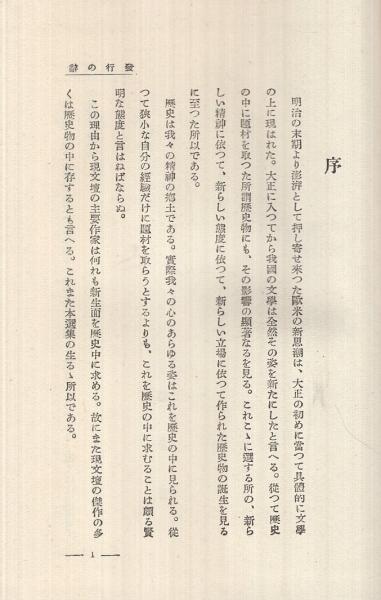 發行の辭
序
明治の末期より澎湃として押し寄せ來つた歐米の新思潮は、大正の初めに當つて具體的に文學
の上に現はれた。大正に入つてから我國の文學は全然その姿を新たにしたと言へる。從つて歷史
の中に題材を取つた所謂歷史物にも、その影響の顯著なるを見る。これこゝに選する所の、新ら
しい精神に依つて、新らしい態度に依つて、新らしい立場に依つて作られた歷史物の誕生を見る
に至つた所以である。
歷史は我々の精神の鄕土である。實際我々の心のあらゆる姿はこれを歷史の中に見られる。從
つて狹小な自分の經驗だけに題材を取らうとするよりも、これを歷史の中に求むることは頗る賢
明な態度と言はねばならぬ。
この理由から現文壇の主要作家は何れも新生面を歷史中に求める。故にまた現文壇の傑作の多
くは歷史物の中に存するとも言へる。これまた本選集の生るゝ所以である。
— 1 —